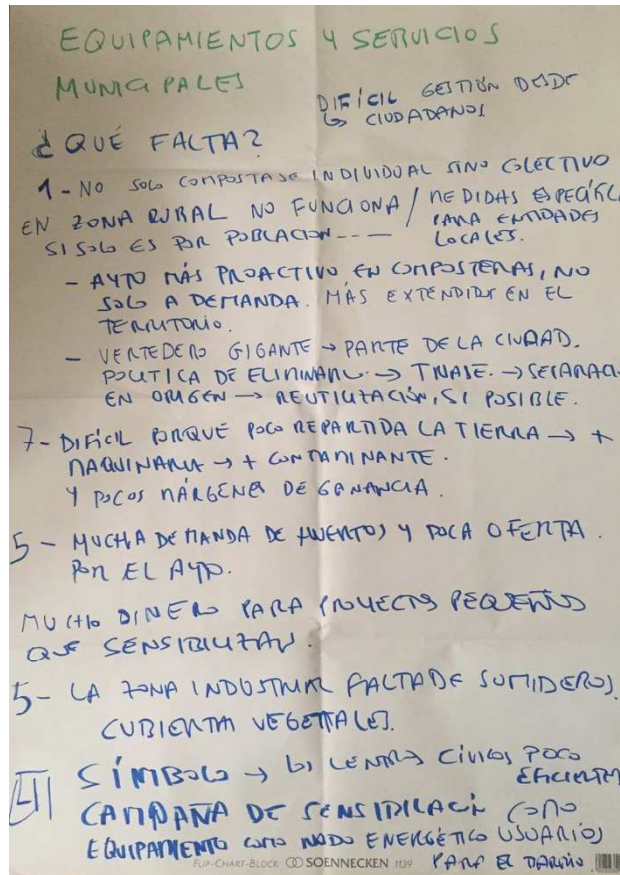 EQUIPAMIENTOS Y SERVICIOS
MUNICIPALES
DIFÍCIL GESTIÓN DESDE
LOS CIUDADANOS
¿QUÉ FALTA?
1 - NO SOLO COMPOSTAJE INDIVIDUAL SINO COLECTIVO
EN ZONA RURAL NO FUNCIONA / MEDIDAS ESPECÍFIC
SI SOLO ES POR POBLACION---- PARA ENTIDADES
LOCALES.
- AYTO MÁS PROACTIVO EN COMPOSTERAS, NO
SOLO A DEMANDA. MÁS EXTENDIDAS EN EL
TERRITORIO.
- VERTEDERO GIGANTE → PARTE DE LA CIUDAD.
POLÍTICA DE ELIMINARLO. → → SEPARACI
EN ORIGEN → REUTILIZACIÓN, SI POSIBLE.
7 - DIFÍCIL PORQUE POCO REPARTIDA LA TIERRA → +
MAQUINARIA → + CONTAMINANTE.
Y POCOS MÁRGENES DE GANANCIA.
5 - MUCHA DEMANDA DE HUERTOS Y POCA OFERTA
POR EL AYTO.
MUCHO DINERO PARA PROYECTOS PEQUEÑOS
QUE SENSIBILIZAN.
5 - LA ZONA INDUSTRIAL FALTA DE SUMIDEROS,
CUBIERTA VEGETALES.
4 SÍMBOLO → LOS CENTROS CÍVICOS POCO
EFICIENTES
CAMPAÑA DE COMO
EQUIPAMIENTO COMO NODO ENERGÉTICO USUARIOS
PARA EL BARRIO
FLIP-CHART-BLOCK SOENNECKEN 1139